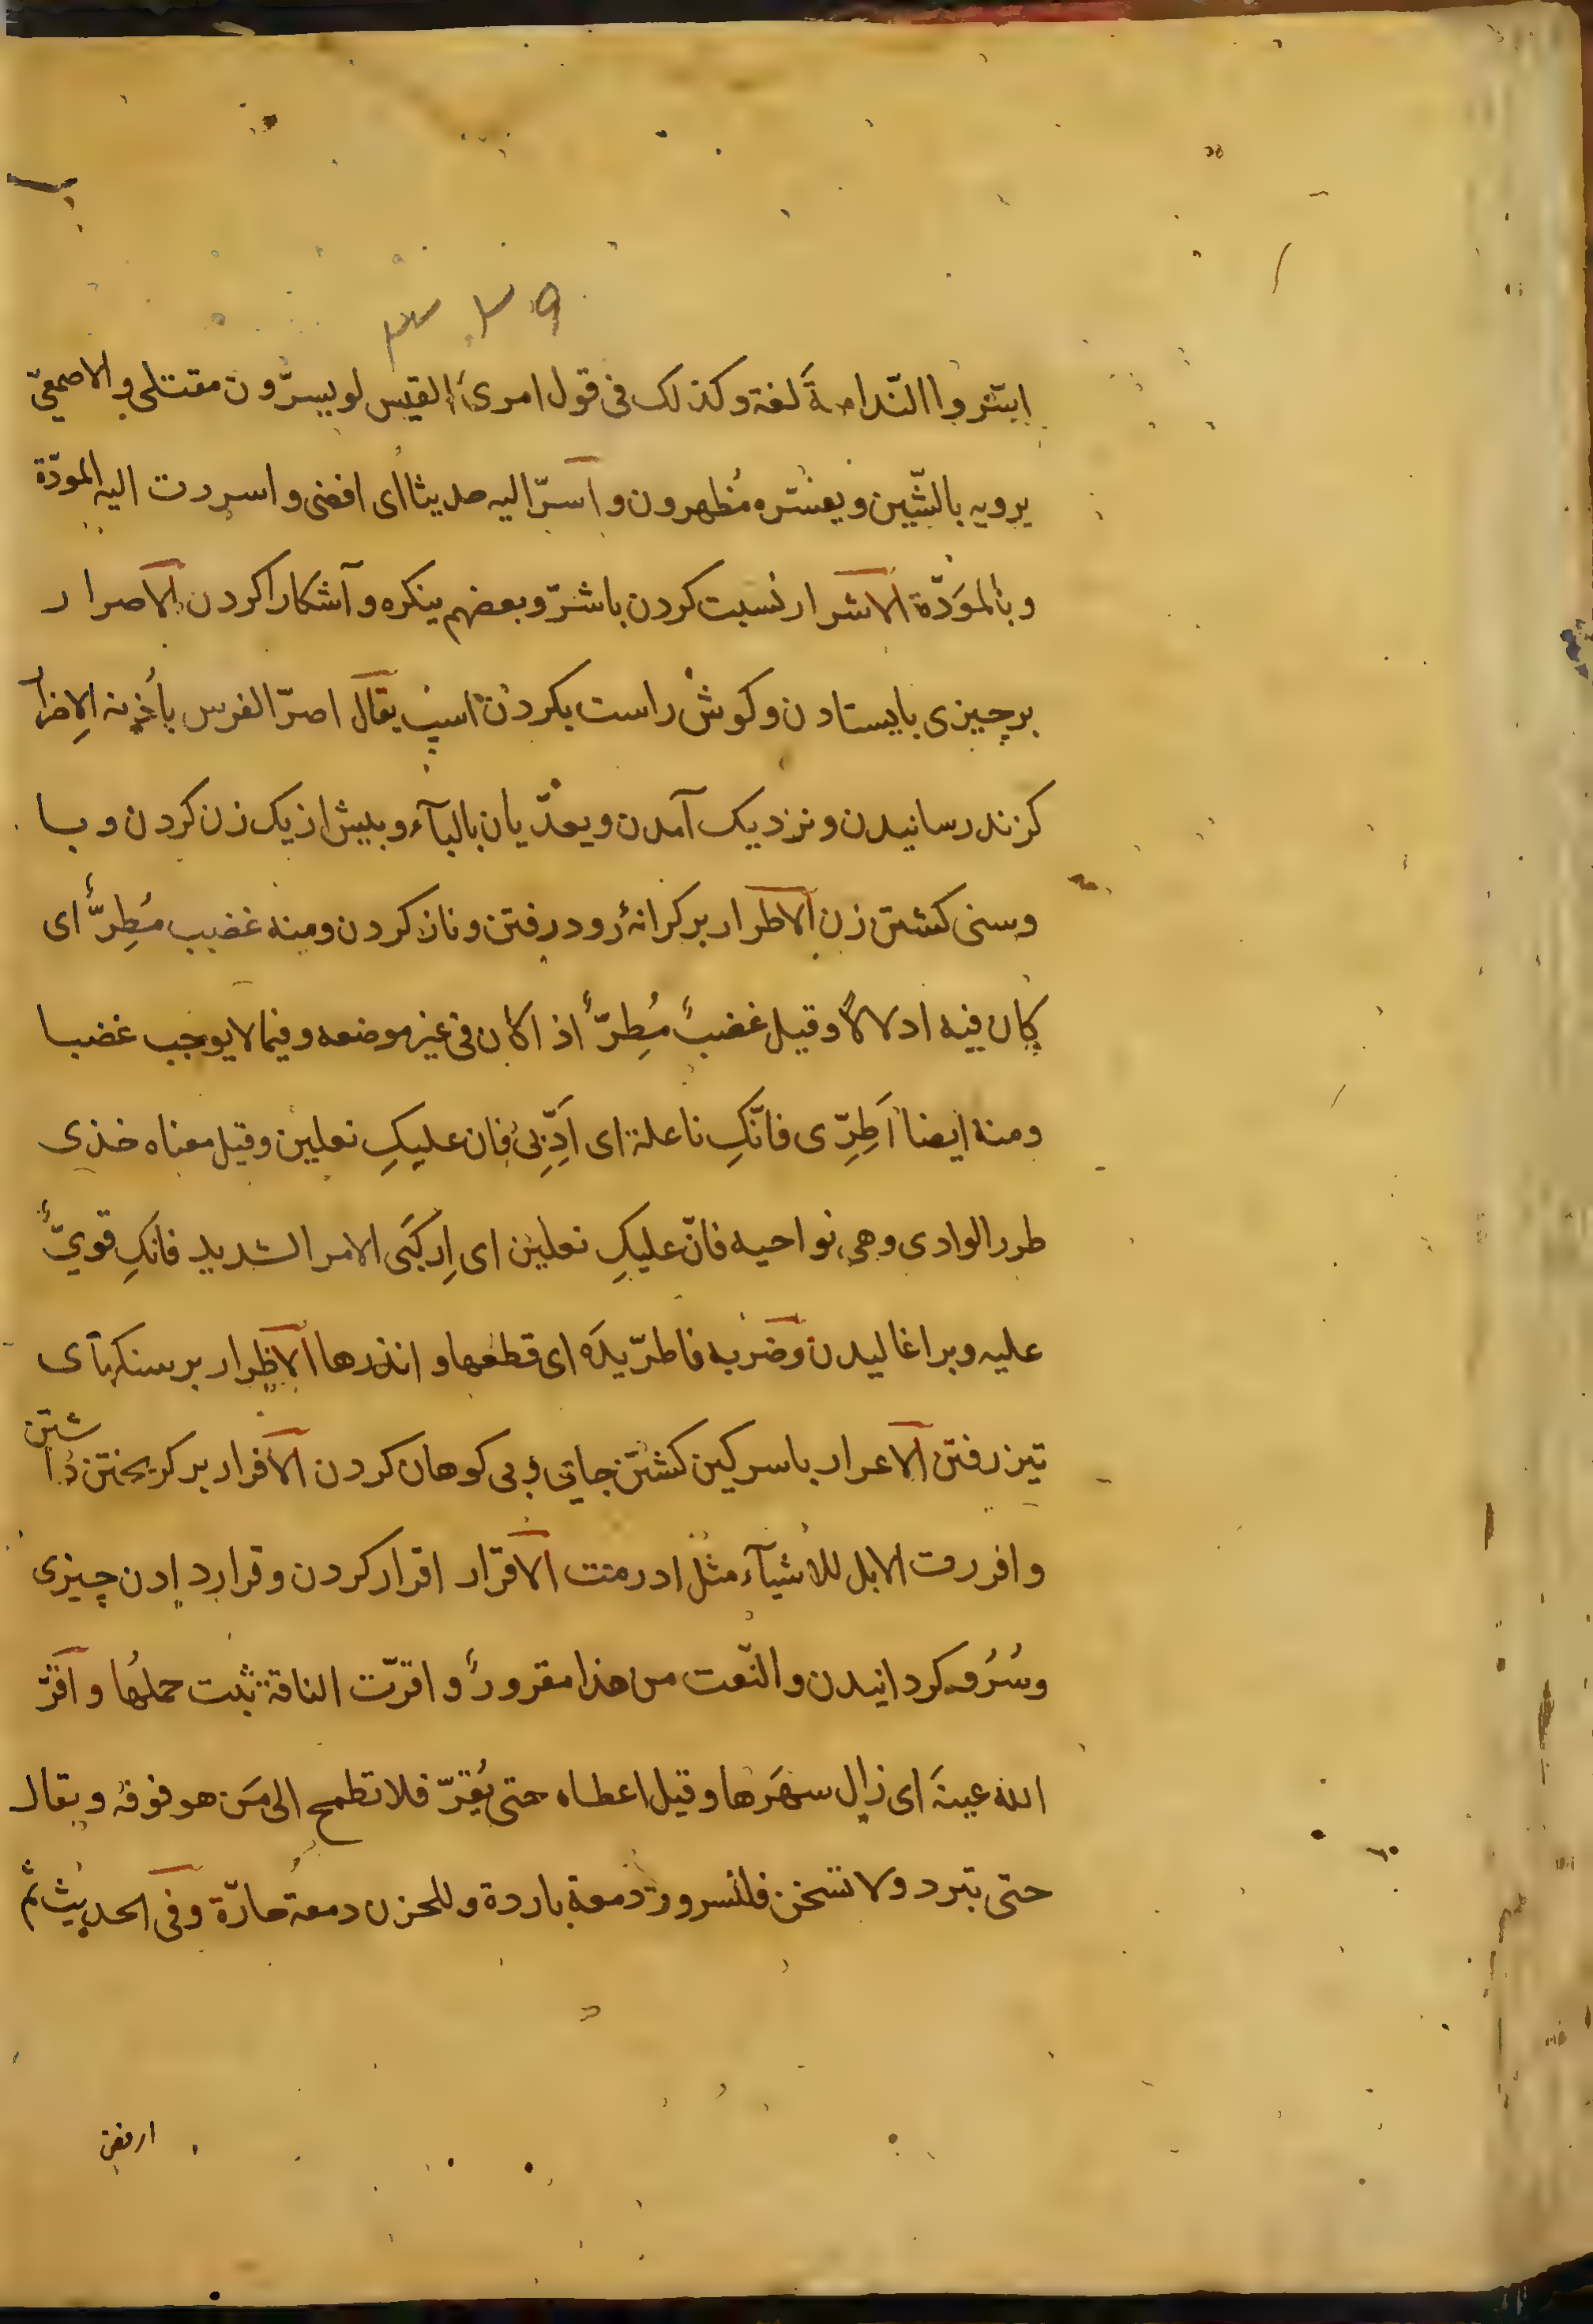 ۳۲۹
ایتروا النّدامةَ لغة وکذلک فی قول امرئ القیس لو یسرّون مقتلی والاصمعیّ
یرویه بالشّین ویفسّره مُظهرون واسرّ الیه حدیثا ای افضی واسررت الیه المودّة
وبالمَوَدّة الاشرار نسبت کردن باشرّ وبعضهم ینکره وآشکارا کردن الاصرار
بر چیزی بایستادن وکوش راست بکردن اسپ یقال اصرّ الفرس بأذنه الاِضرار
کزند رسانیدن ونزدیک آمدن ویعدّیان بالبآء وبیش از یک زن کردن وبا
وسنی کشتن زن الاطرار بر کرانهٔ رود رفتن وناز کردن ومنه غضب مُطِرٌّ ای
کان فیه ادلالاً وقیل غضبٌ مُطِرٌّ اذا کان فی غیر موضعه وفیما لا یوجب غضبا
ومنه ایضا اَطِرِّی فانّکِ ناعلة ای اَدِّبِی فان علیکِ نعلین وقیل معناه خذی
طرر الوادی وهی نواحیه فانّ علیکِ نعلین ای اِرکَبی الامر الشدید فانکِ قویٌّ
علیه وبراغالیدن وضربه فاطرّ یدَه ای قطعها واندرها الاظرار بر سنکهآی
تیز رفتن الاعرار باسرکین کشتن جای وبی کوهان کردن الافرار بر کریختن داشتن
وافررت الابل للاشیآء مثل ادرمت الاقرار اقرار کردن وقرار دادن چیزی
وسُرُف کردانیدن والنّعت من هذا مقرورٌ واقرّت الناقة ثبت حملُها واقرّ
الله عینَه ای زال سهَرها وقیل اعطاه حتی یُقِرّ فلا تطمح الی مَن هو فوقه ویقال
حتی تبرد ولا تسخن فللسرور دمعة باردة وللحزن دمعة حارّة وفی الحدیث ثم